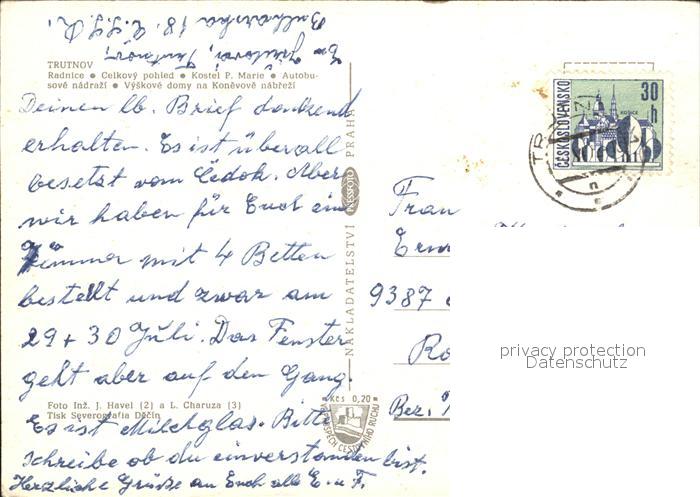 TRUTNOV
Radnice ● Celkový pohled ● Kostel P. Marie ● Autobu-
sové nádraží ● Výškové domy na Koněvově nábřeží
Deinen lb. Brief dankend
erhalten. Es ist überall
besetzt vom Čedok. Aber
wir haben für Euch ein
Zimmer mit 4 Betten
bestellt und zwar am
29 + 30 Juli. Das Fenster
geht aber auf den Gang.
Foto Inž. J. Havel (2) a L. Charuza (3)
Tisk Severografia Děčín
Es ist Milchglas. Bitte
schreibe ob du einverstanden bist.
Herzliche Grüße an Euch alle E. u. F.
NAKLADATELSTVÍ PRESSFOTO PRAHA
Kčs 0,20
VE PROSPĚCH CESTOVNÍHO RUCHU
ČESKOSLOVENSKO
30 h
KOŠICE
Fran
Ern
9387
Ro
Bez.
privacy protection
Datenschutz